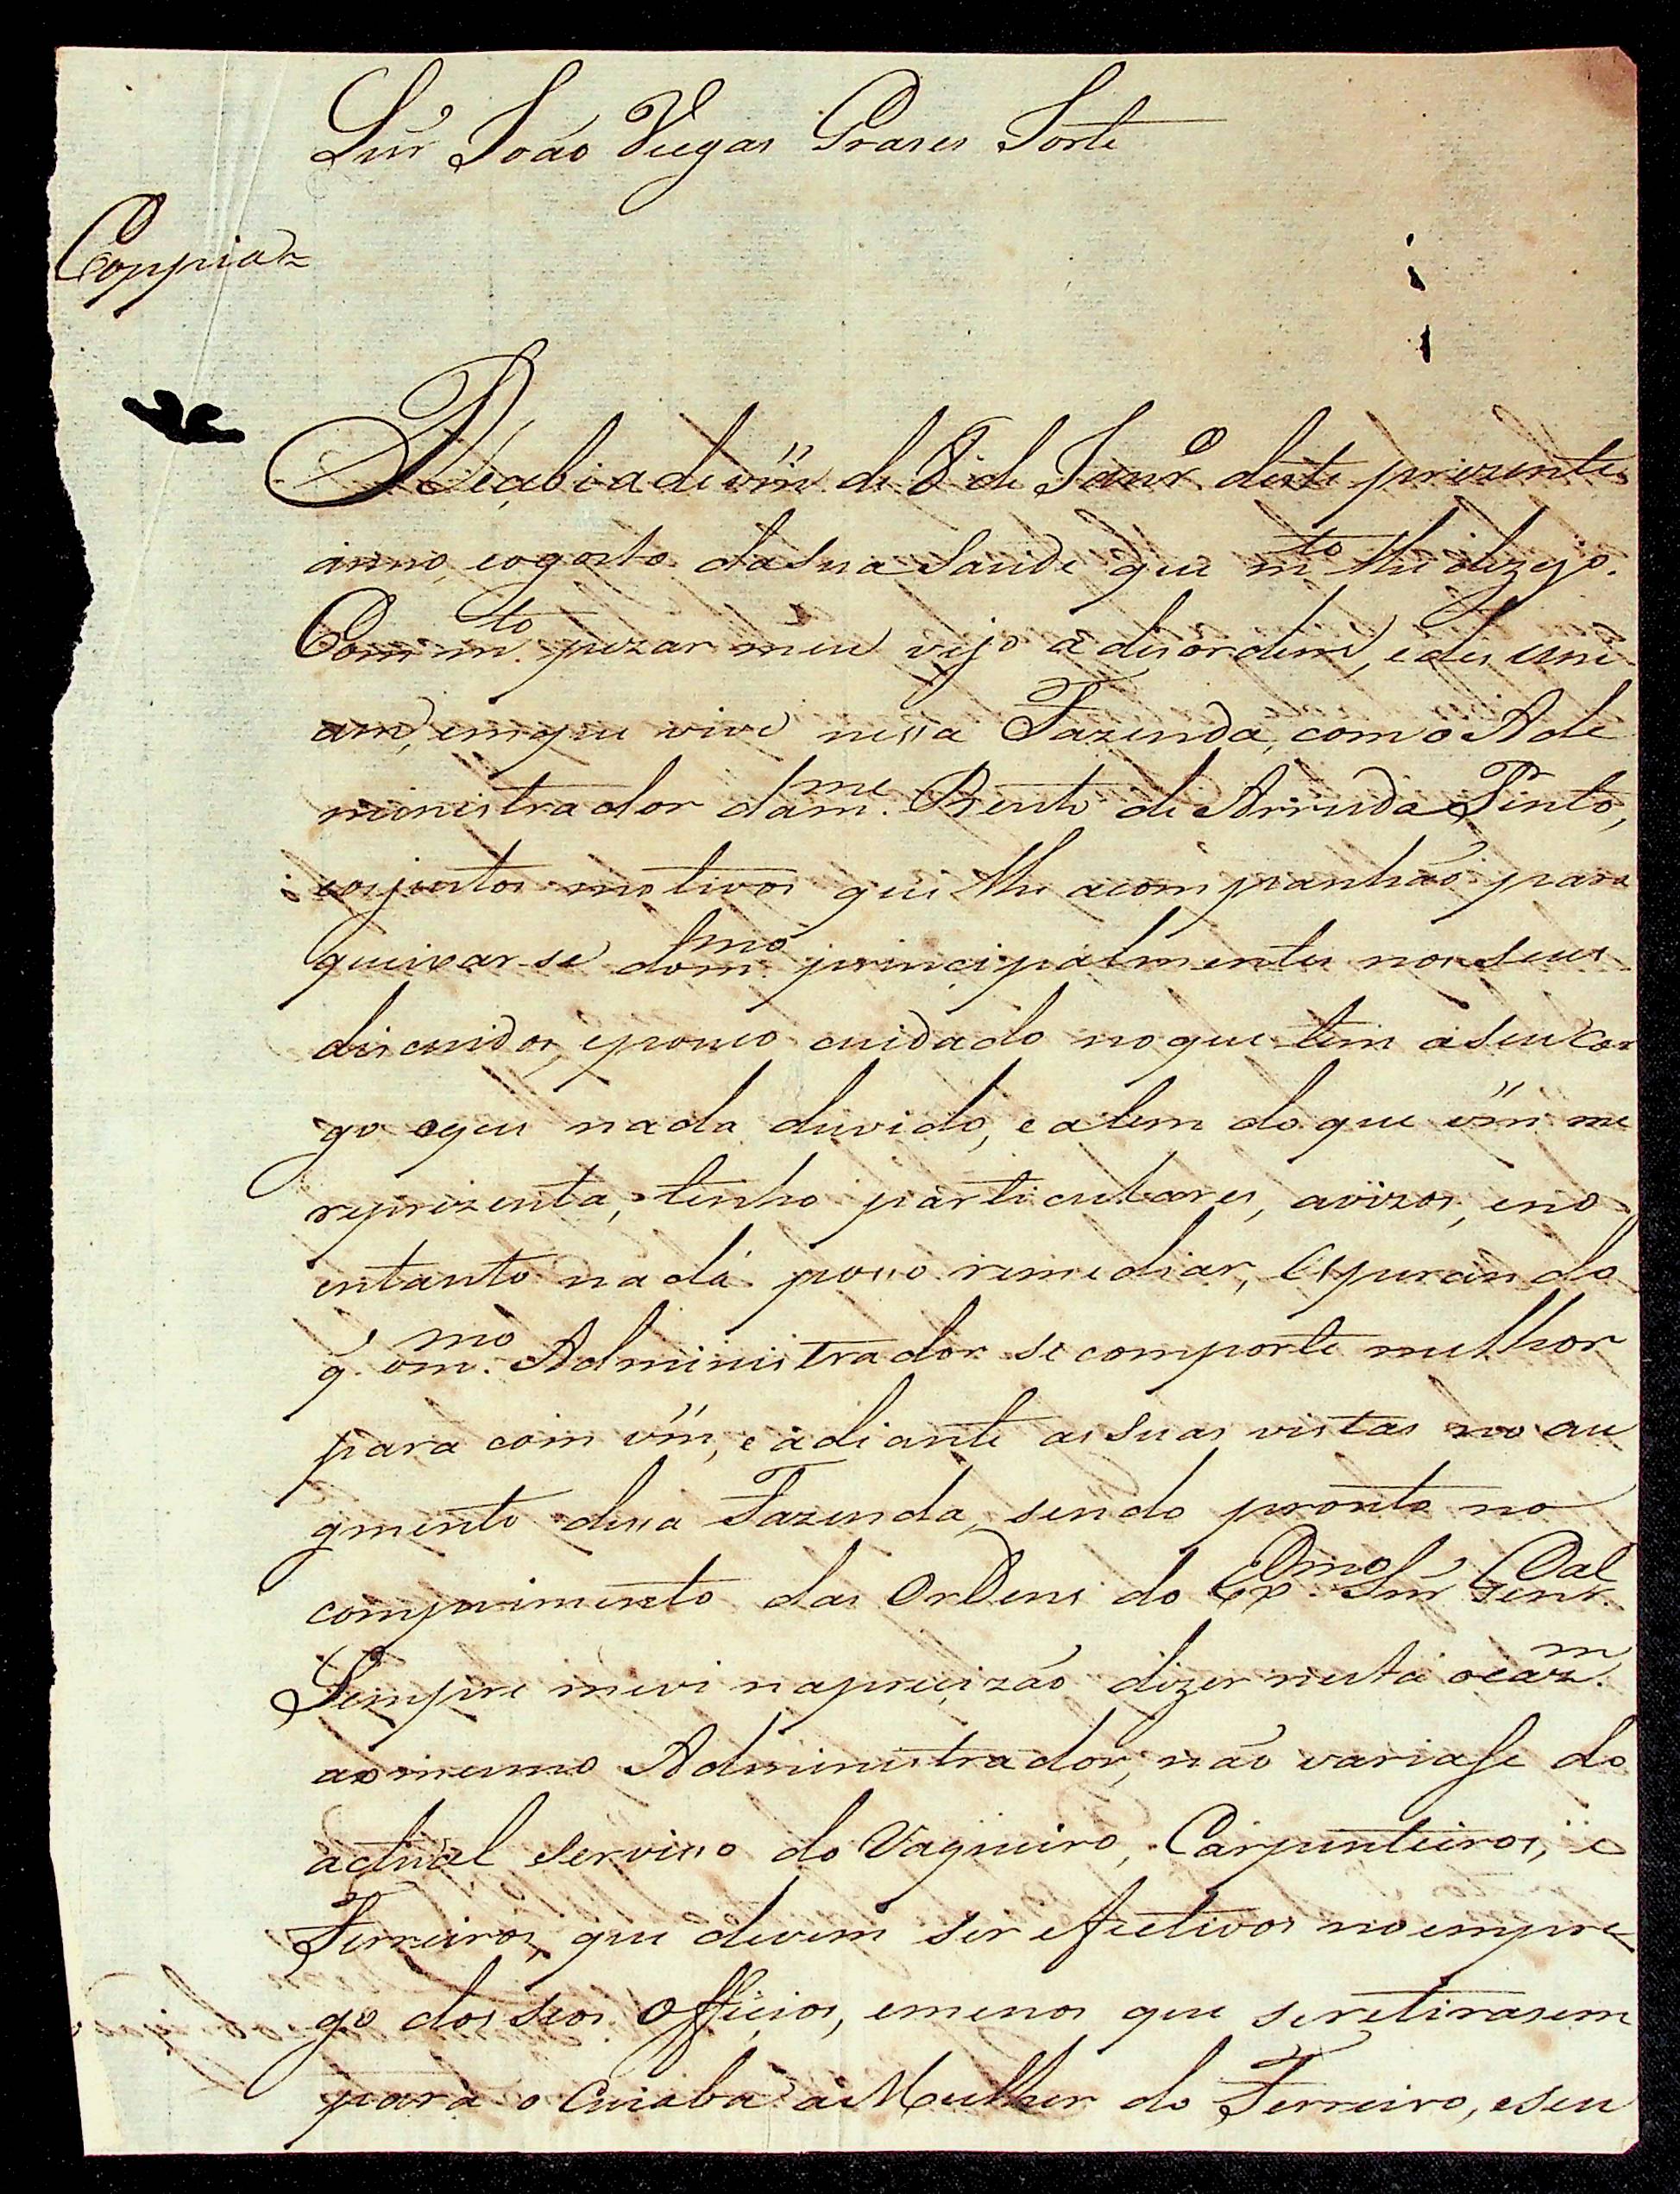 Snr̃ João Viegas Prases Forte
Coppia=
Recebi a de vm̃ de 8 de Janrº deste prezente
anno, eogosto dasua Saude que mto lhe dezejo.
Com mto pezar meu vejo a desordem, edes uni
am, emque vive nessa Fazenda, com o Ade
ministrador dam.me Bento de Arruda Pinto,
eosjustos motivos que lhe acompanhão para
queixar-se dom.mo principalmente nos seus
discuidos, epouco cuidado noque tem aseu car
go oque nada duvido, e alem do que vm̃ me
reprizenta, tenho particulares, avizos, eno
entanto nada posso remediar, Esperando
q̃ om.mo Administrador se comporte milhor
para com vm̃, e adiante as suas vistas no au
gmento dessa Fazenda, sendo pronto no
comprimento das Ordens do Exmo Snr̃ Genal.
Sempre mevi napreçizão dizer nesta ocazm.
ao mesmo Administrador, não variasse do
actual serviço do Vaqueiro, Carpinteiros, e
Ferreiros, que devem ser efectivos noempre=
go dos seos Offiçios, emenos que seretirasem
para o Cuiaba a Mulher do Ferreiro, eseu